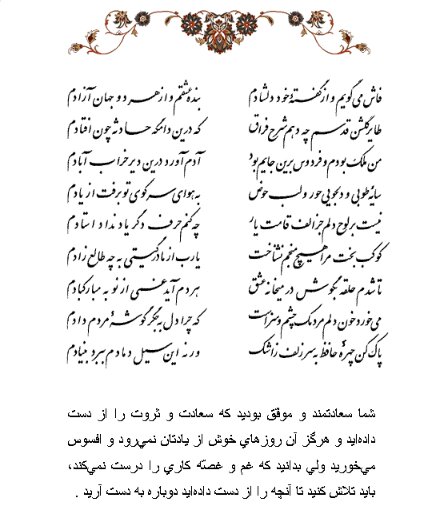 فاش می گویم و از گفتهٔ خود دلشادم بنده عشقم و از هر دو جهان آزادم
طایر گلشن قدسم چه دهم شرح فراق که درین دامگه حادثه چون افتادم
من ملک بودم و فردوس برین جایم بود آدم آورد درین دیر خراب آبادم
سایهٔ طوبی و دلجویی حور و لب حوض به هوای سر کوی تو برفت از یادم
نیست بر لوح دلم جز الف قامت یار چه کنم حرف دگر یاد نداد استادم
کوکب بخت مرا هیچ منجم نشناخت یارب از مادر گیتی به چه طالع زادم
تا شدم حلقه بگوش در میخانهٔ عشق هر دم آید غمی از نو به مبارکبادم
می خورد خون دلم مردمک چشم و سزاست که چرا دل به جگر گوشهٔ مردم دادم
پاک کن چهرهٔ حافظ به سر زلف ز اشک ورنه این سیل دمادم ببرد بنیادم
شما سعادتمند و موفق بودید که سعادت و ثروت را از دست
داده‌اید و هرگز آن روزهاي خوش از يادتان نمي‌رود و افسوس
مي‌خوريد ولي بدانيد كه غم و غصّه كاري را درست نمي‌كند،
بايد تلاش كنيد تا آنچه را از دست داده‌ايد دوباره به دست آريد .